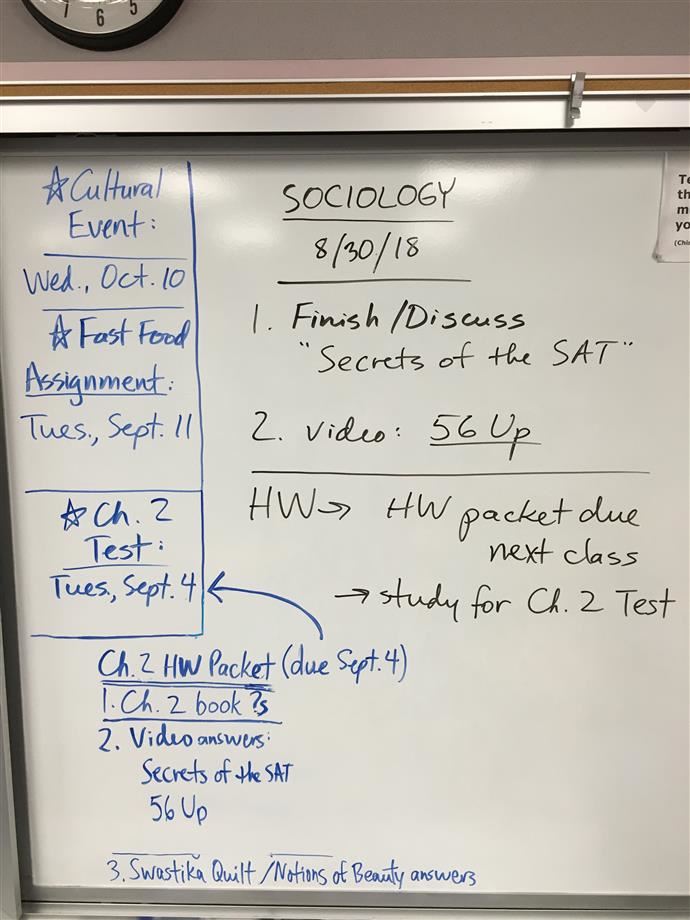 7 6 5
☆ Cultural
Event:
Wed., Oct. 10
☆ Fast Food
Assignment:
Tues., Sept. 11
☆ Ch. 2
Test:
Tues., Sept. 4
SOCIOLOGY
8/30/18
1. Finish/Discuss
"Secrets of the SAT"
2. Video: 56 Up
HW → HW packet due
next class
→ study for Ch. 2 Test
Ch. 2 HW Packet (due Sept. 4)
1. Ch. 2 book ?s
2. Video answers:
Secrets of the SAT
56 Up
3. Swastika Quilt / Notions of Beauty answers